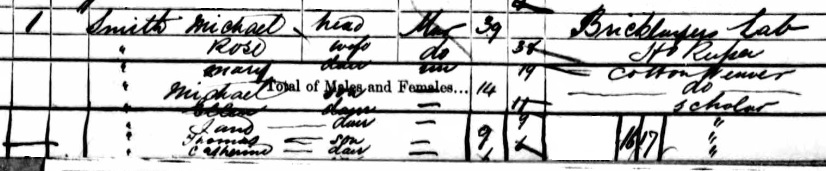 1 Smith Michael head Mar 39 Bricklayers Lab
" Rose wife do 38
" Mary daur un 19 Cotton Weaver
" Michael son 14 do
Total of Males and Females...
" Ellen daur 11 scholar
" Jane daur 9 "
" Thomas son 9 16 17 "
" Catherine daur "